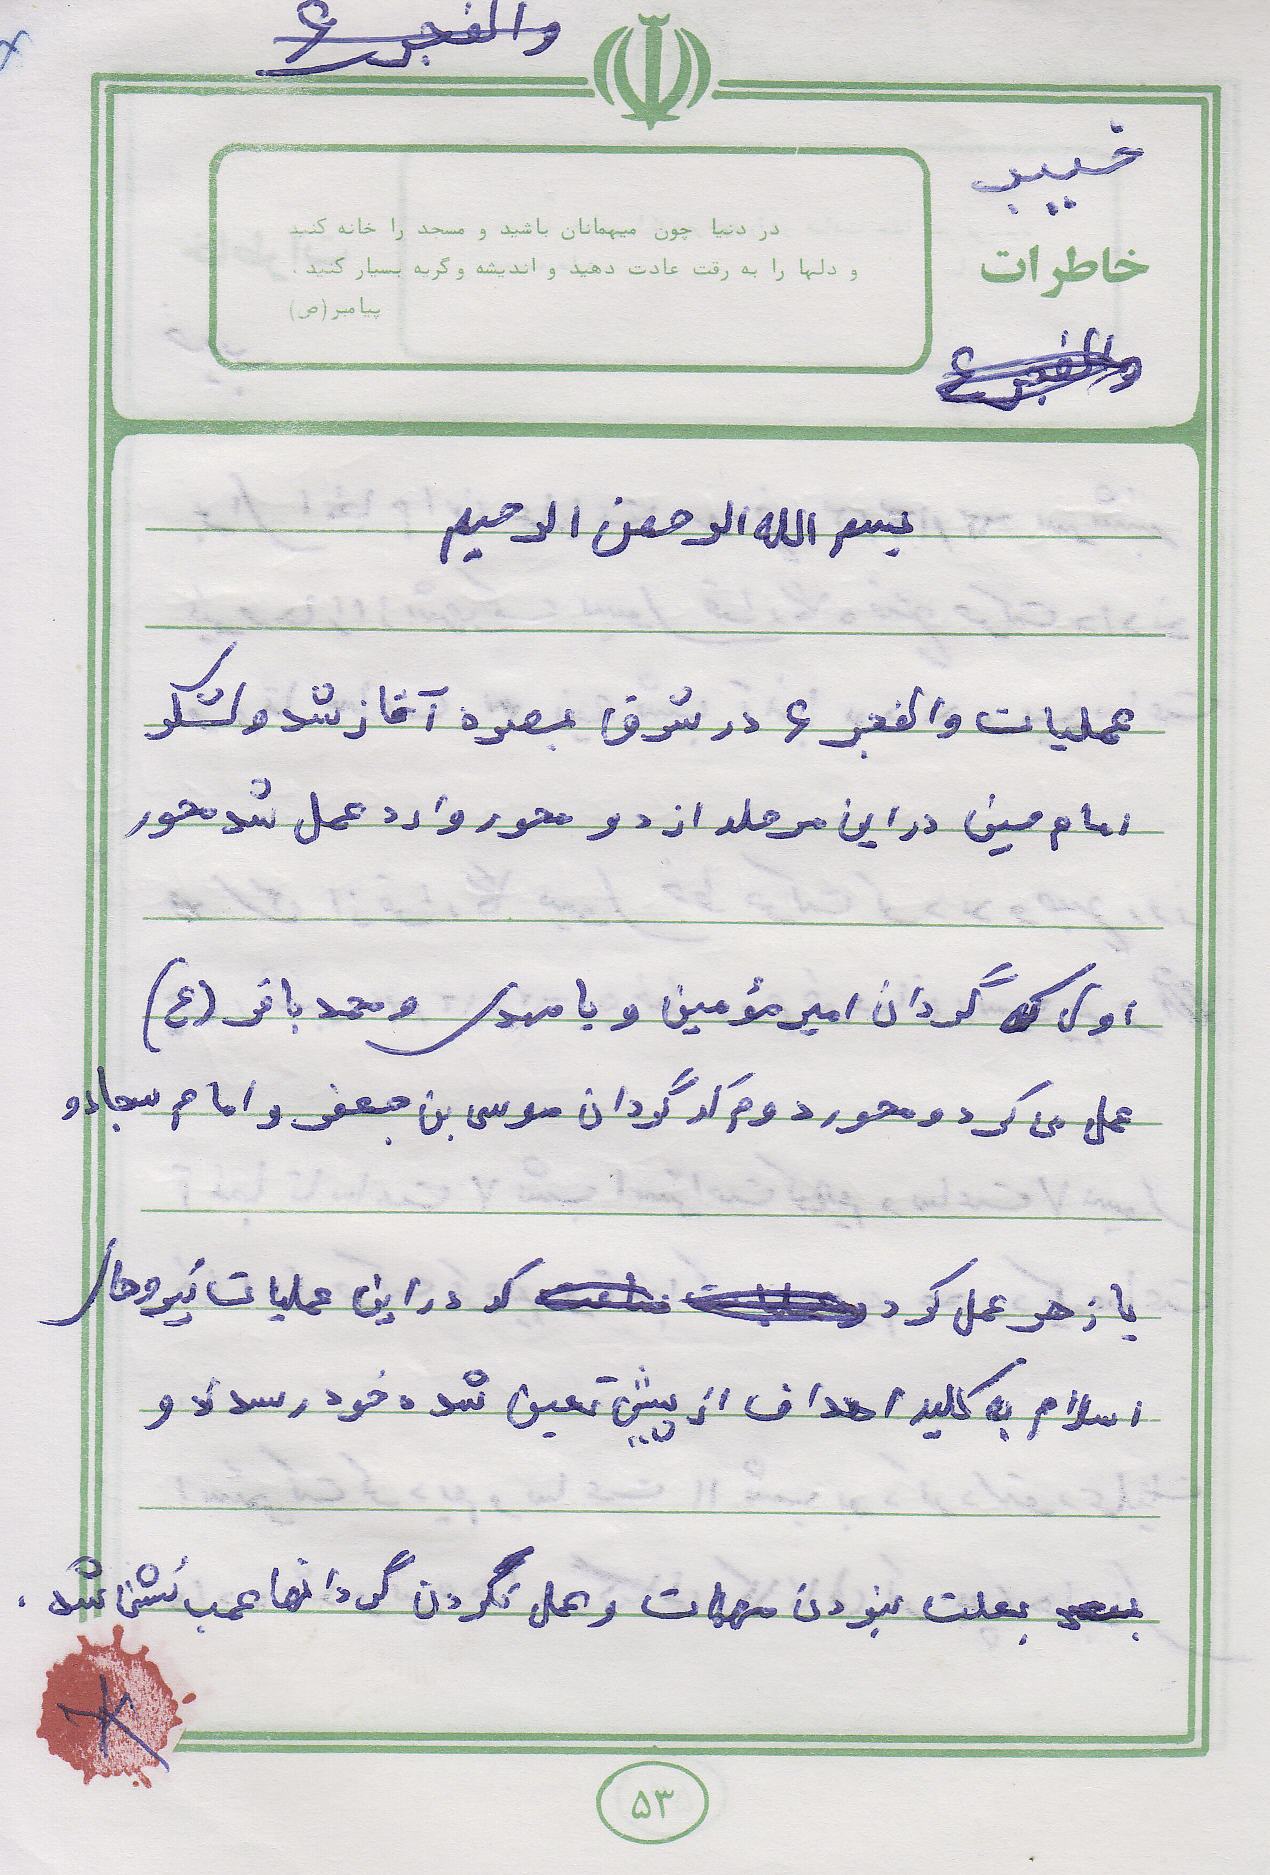 والفجر ۶
خیبر
در دنیا چون میهمانان باشید و مسجد را خانه کنید
و دلها را به رقت عادت دهید و اندیشه و گریه بسیار کنید.
پیامبر (ص)
خاطرات
والفجر ۶
بسم الله الرحمن الرحیم
عملیات والفجر ۶ در شرق بصره آغاز شد و لشکر
امام حسین در این مرحله از دو محور وارد عمل شد محور
اول که گردان امیرمؤمین و یا مهدی و محمد باقر (ع)
عمل می کرد و محور دوم که گردان موسی بن جعفر و امام سجاد و
یا زهر عمل کرد که در این عملیات نیروهای
اسلام به کلیه اهداف از پیش تعین شده خود رسدند و
بعلت نبودن مهمات و عمل نکردن گردانها عقب نشنی شد.
۵۳